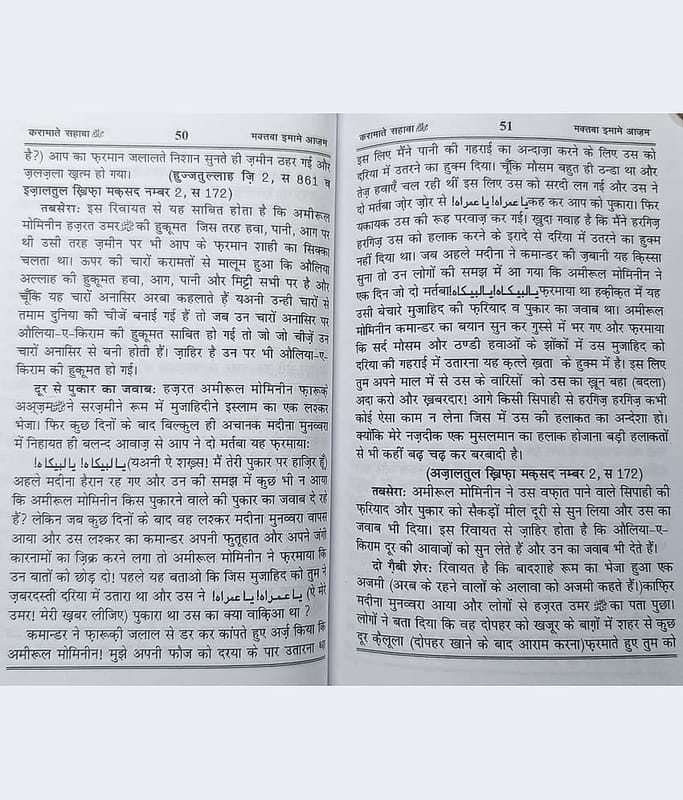 करामाते सहाबा 50 मक्तबा इमामे आज़म
है?) आप का फ़रमान जलालते निशान सुनते ही ज़मीन ठहर गई और
ज़लज़ला खत्म हो गया। (हुज्जतुल्लाह ज़ि 2, स 861 व
इज़ालतुल ख़िफ़ा मक़सद नम्बर 2, स 172)
तबसेरा: इस रिवायत से यह साबित होता है कि अमीरूल
मोमिनीन हज़रत उमर की हुकूमत जिस तरह हवा, पानी, आग पर
थी उसी तरह ज़मीन पर भी आप के फ़रमान शाही का सिक्का
चलता था। ऊपर की चारों करामतों से मालूम हुआ कि औलिया
अल्लाह की हुकूमत हवा, आग, पानी और मिट्टी सभी पर है और
चूँकि यह चारों अनासिर अरबा कहलाते हैं यअनी उन्ही चारों से
तमाम दुनिया की चीजें बनाई गई हैं तो जब उन चारों अनासिर पर
औलिया-ए-किराम की हुकूमत साबित हो गई तो जो जो चीजें उन
चारों अनासिर से बनी होती हैं। ज़ाहिर है उन पर भी औलिया-ए-
किराम की हुकूमत हो गई।
दूर से पुकार का जवाब: हज़रत अमीरूल मोमिनीन फ़ारूके
अअ्ज़म ने सरज़मीने रूम में मुजाहिदीने इस्लाम का एक लश्कर
भेजा। फिर कुछ दिनों के बाद बिल्कुल ही अचानक मदीना मुनव्वरा
में निहायत ही बलन्द आवाज़ से आप ने दो मर्तबा यह फ़रमाया:
يا لبيكاه! يا لبيكاه! (यअनी ऐ शख्स! मैं तेरी पुकार पर हाज़िर हूँ)
अहले मदीना हैरान रह गए और उन की समझ में कुछ भी न आया
कि अमीरूल मोमिनीन किस पुकारने वाले की पुकार का जवाब दे रहे
हैं? लेकिन जब कुछ दिनों के बाद वह लश्कर मदीना मुनव्वरा वापस
आया और उस लश्कर का कमान्डर अपनी फुतूहात और अपने जंगी
कारनामों का ज़िक्र करने लगा तो अमीरूल मोमिनीन ने फ़रमाया कि
उन बातों को छोड़ दो! पहले यह बताओ कि जिस मुजाहिद को तुम ने
ज़बरदस्ती दरिया में उतारा था और उस ने يا عمراه! يا عمراه! (ऐ मेरे
उमर! मेरी ख़बर लीजिए) पुकारा था उस का क्या वाकिआ था ?
कमान्डर ने फ़ारूक़ी जलाल से डर कर कांपते हुए अर्ज़ किया कि
अमीरूल मोमिनीन! मुझे अपनी फौज को दरया के पार उतारना था
करामाते सहाबा 51 मक्तबा इमामे आज़म
इस लिए मैंने पानी की गहराई का अन्दाज़ा करने के लिए उस को
दरिया में उतरने का हुक्म दिया। चूँकि मौसम बहुत ही उन्डा था और
तेज़ हवाएँ चल रही थीं इस लिए उस को सरदी लग गई और उस ने
दो मर्तबा ज़ोर ज़ोर से يا عمراه! يا عمراه! कह कर आप को पुकारा। फिर
यकायक उस की रूह परवाज़ कर गई। खुदा गवाह है कि मैंने हरगिज़
हरगिज़ उस को हलाक करने के इरादे से दरिया में उतरने का हुक्म
नहीं दिया था। जब अहले मदीना ने कमान्डर की ज़बानी यह क़िस्सा
सुना तो उन लोगों की समझ में आ गया कि अमीरूल मोमिनीन ने
एक दिन जो दो मर्तबा يا لبيكاه! يا لبيكاه! फ़रमाया था हक़ीक़त में यह
उसी बेचारे मुजाहिद की फ़रियाद व पुकार का जवाब था। अमीरूल
मोमिनीन कमान्डर का बयान सुन कर गुस्से में भर गए और फ़रमाया
कि सर्द मौसम और ठण्डी हवाओं के झोंकों में उस मुजाहिद को
दरिया की गहराई में उतारना यह क़त्ले ख़ता के हुक्म में है। इस लिए
तुम अपने माल में से उस के वारिसों को उस का ख़ून बहा (बदला)
अदा करो और ख़बरदार! आगे किसी सिपाही से हरगिज़ हरगिज़ कभी
कोई ऐसा काम न लेना जिस में उस की हलाकत का अन्देशा हो।
क्योंकि मेरे नज़दीक एक मुसलमान का हलाक होजाना बड़ी हलाकतों
से भी कहीं बढ़ चढ़ कर बरबादी है।
(अज़ालतुल ख़िफ़ा मक़सद नम्बर 2, स 172)
तबसेरा: अमीरूल मोमिनीन ने उस वफ़ात पाने वाले सिपाही की
फ़रियाद और पुकार को सैकड़ों मील दूरी से सुन लिया और उस का
जवाब भी दिया। इस रिवायत से ज़ाहिर होता है कि औलिया-ए-
किराम दूर की आवाजों को सुन लेते हैं और उन का जवाब भी देते हैं।
दो गैबी शेर: रिवायत है कि बादशाहे रूम का भेजा हुआ एक
अजमी (अरब के रहने वालों के अलावा को अजमी कहते हैं।)काफ़िर
मदीना मुनव्वरा आया और लोगों से हज़रत उमर का पता पुछा।
लोगों ने बता दिया कि वह दोपहर को खजूर के बाग़ों में शहर से कुछ
दूर कै़लूला (दोपहर खाने के बाद आराम करना)फ़रमाते हुए तुम को